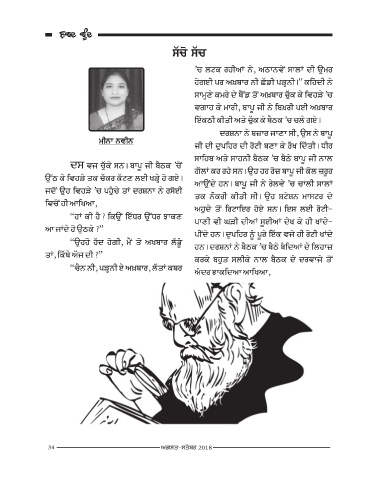 ਸ਼ਬਦ ਬੂੰਦ
ਸੱਚੋ ਸੱਚ
ਮੀਨਾ ਨਵੀਨ
ਦਸ ਵਜ ਚੁੱਕੇ ਸਨ। ਬਾਪੂ ਜੀ ਬੈਠਕ 'ਚੋਂ
ਉੱਠ ਕੇ ਵਿਹੜੇ ਤਕ ਚੱਕਰ ਕੱਟਣ ਲਈ ਖੜ੍ਹੇ ਹੋ ਗਏ।
ਜਦੋਂ ਉਹ ਵਿਹੜੇ 'ਚ ਪਹੁੰਚੇ ਤਾਂ ਦਰਸ਼ਨਾ ਨੇ ਰਸੋਈ
ਵਿਚੋਂ ਹੀ ਆਖਿਆ,
"ਹਾਂ ਕੀ ਹੈ? ਕਿਉਂ ਇੱਧਰ ਉੱਧਰ ਝਾਕਣ
ਆ ਜਾਂਦੇ ਹੋ ਉਠਕੇ?"
"ਉਰਹੇ ਹੋਣ ਹੋਗੀ, ਮੈਂ ਤੇ ਅਖਬਾਰ ਲੱਭੂੰ
ਤਾਂ, ਕਿੱਥੇ ਐਜ ਦੀ?"
"ਚੈਨ ਨੀ, ਪੜ੍ਹਨੀ ਏ ਅਖ਼ਬਾਰ, ਲੱਤਾਂ ਕਬਰ
'ਚ ਲਟਕ ਰਹੀਆਂ ਨੇ, ਅਠਾਨਵੇਂ ਸਾਲਾਂ ਦੀ ਉਮਰ
ਹੋਗਈ ਪਰ ਅਖ਼ਬਾਰ ਨੀ ਛੱਡੀ ਪੜ੍ਹਨੀ।" ਕਹਿੰਦੀ ਨੇ
ਸਾਮ੍ਹਣੇ ਕਮਰੇ ਦੇ ਬੈੱਡ ਤੋਂ ਅਖ਼ਬਾਰ ਚੁੱਕ ਕੇ ਵਿਹੜੇ 'ਚ
ਵਗਾਹ ਕੇ ਮਾਰੀ, ਬਾਪੂ ਜੀ ਨੇ ਬਿਖਰੀ ਪਈ ਅਖ਼ਬਾਰ
ਇੱਕਠੀ ਕੀਤੀ ਅਤੇ ਚੁੱਕ ਕੇ ਬੈਠਕ 'ਚ ਚਲੇ ਗਏ।
ਦਰਸ਼ਨਾ ਨੇ ਬਜ਼ਾਰ ਜਾਣਾ ਸੀ, ਉਸ ਨੇ ਬਾਪੂ
ਜੀ ਦੀ ਦੁਪਹਿਰ ਦੀ ਰੋਟੀ ਬਣਾ ਕੇ ਰੱਖ ਦਿੱਤੀ। ਧੀਰ
ਸਾਹਿਬ ਅਤੇ ਸਾਹਨੀ ਬੈਠਕ 'ਚ ਬੈਠੇ ਬਾਪੂ ਜੀ ਨਾਲ
ਗੱਲਾਂ ਕਰ ਰਹੇ ਸਨ। ਉਹ ਹਰ ਰੋਜ਼ ਬਾਪੂ ਜੀ ਕੋਲ ਜ਼ਰੂਰ
ਆਉਂਦੇ ਹਨ। ਬਾਪੂ ਜੀ ਨੇ ਰੇਲਵੇ 'ਚ ਚਾਲੀ ਸਾਲਾਂ
ਤਕ ਨੌਕਰੀ ਕੀਤੀ ਸੀ। ਉਹ ਸਟੇਸ਼ਨ ਮਾਸਟਰ ਦੇ
ਅਹੁਦੇ ਤੋਂ ਰਿਟਾਇਰ ਹੋਏ ਸਨ। ਇਸ ਲਈ ਰੋਟੀ-
ਪਾਣੀ ਵੀ ਘੜੀ ਦੀਆਂ ਸੂਈਆਂ ਦੇਖ ਕੇ ਹੀ ਖਾਂਦੇ-
ਪੀਂਦੇ ਹਨ। ਦੁਪਹਿਰ ਨੂੰ ਪੂਰੇ ਇੱਕ ਵਜੇ ਹੀ ਰੋਟੀ ਖਾਂਦੇ
ਹਨ। ਦਰਸ਼ਨਾ ਨੇ ਬੈਠਕ 'ਚ ਬੈਠੇ ਬੰਦਿਆਂ ਦੇ ਲਿਹਾਜ਼
ਕਰਕੇ ਬਹੁਤ ਸਲੀਕੇ ਨਾਲ ਬੈਠਕ ਦੇ ਦਰਵਾਜੇ ਤੋਂ
ਅੰਦਰ ਝਾਕਦਿਆ ਆਖਿਆ,
34
ਅਗਸਤ-ਸਤੰਬਰ 2018